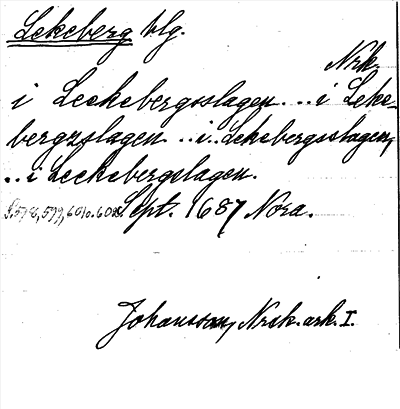 Lekeberg blg.
Nrk.
i Leckebergsslagen ... i Leke-
bergzslagen ... i .. Lekebergsslagen,
... i Leckebergslagen.
S. 578, 599, 601 o. 608. Sept. 1687 Nora.
Johansson, Nrsk. ark. I.